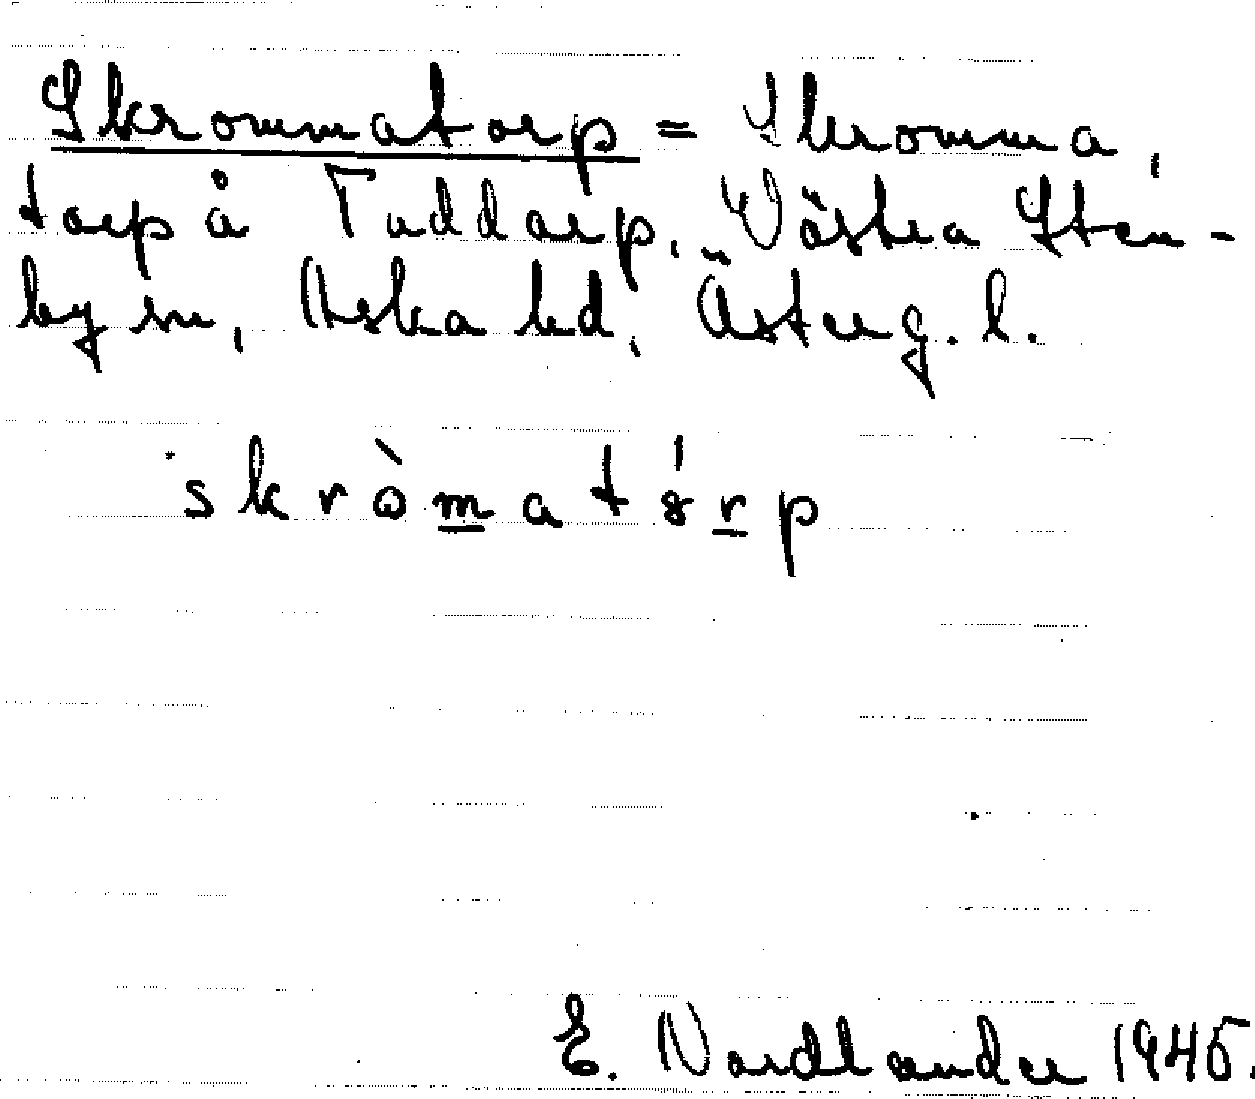 Skrommatorp = Skromma,
torp å Taddorp, Västra Sten-
by sn, Aska hd, Österg. l.
skròmatórp
E. Nordlander 1945.